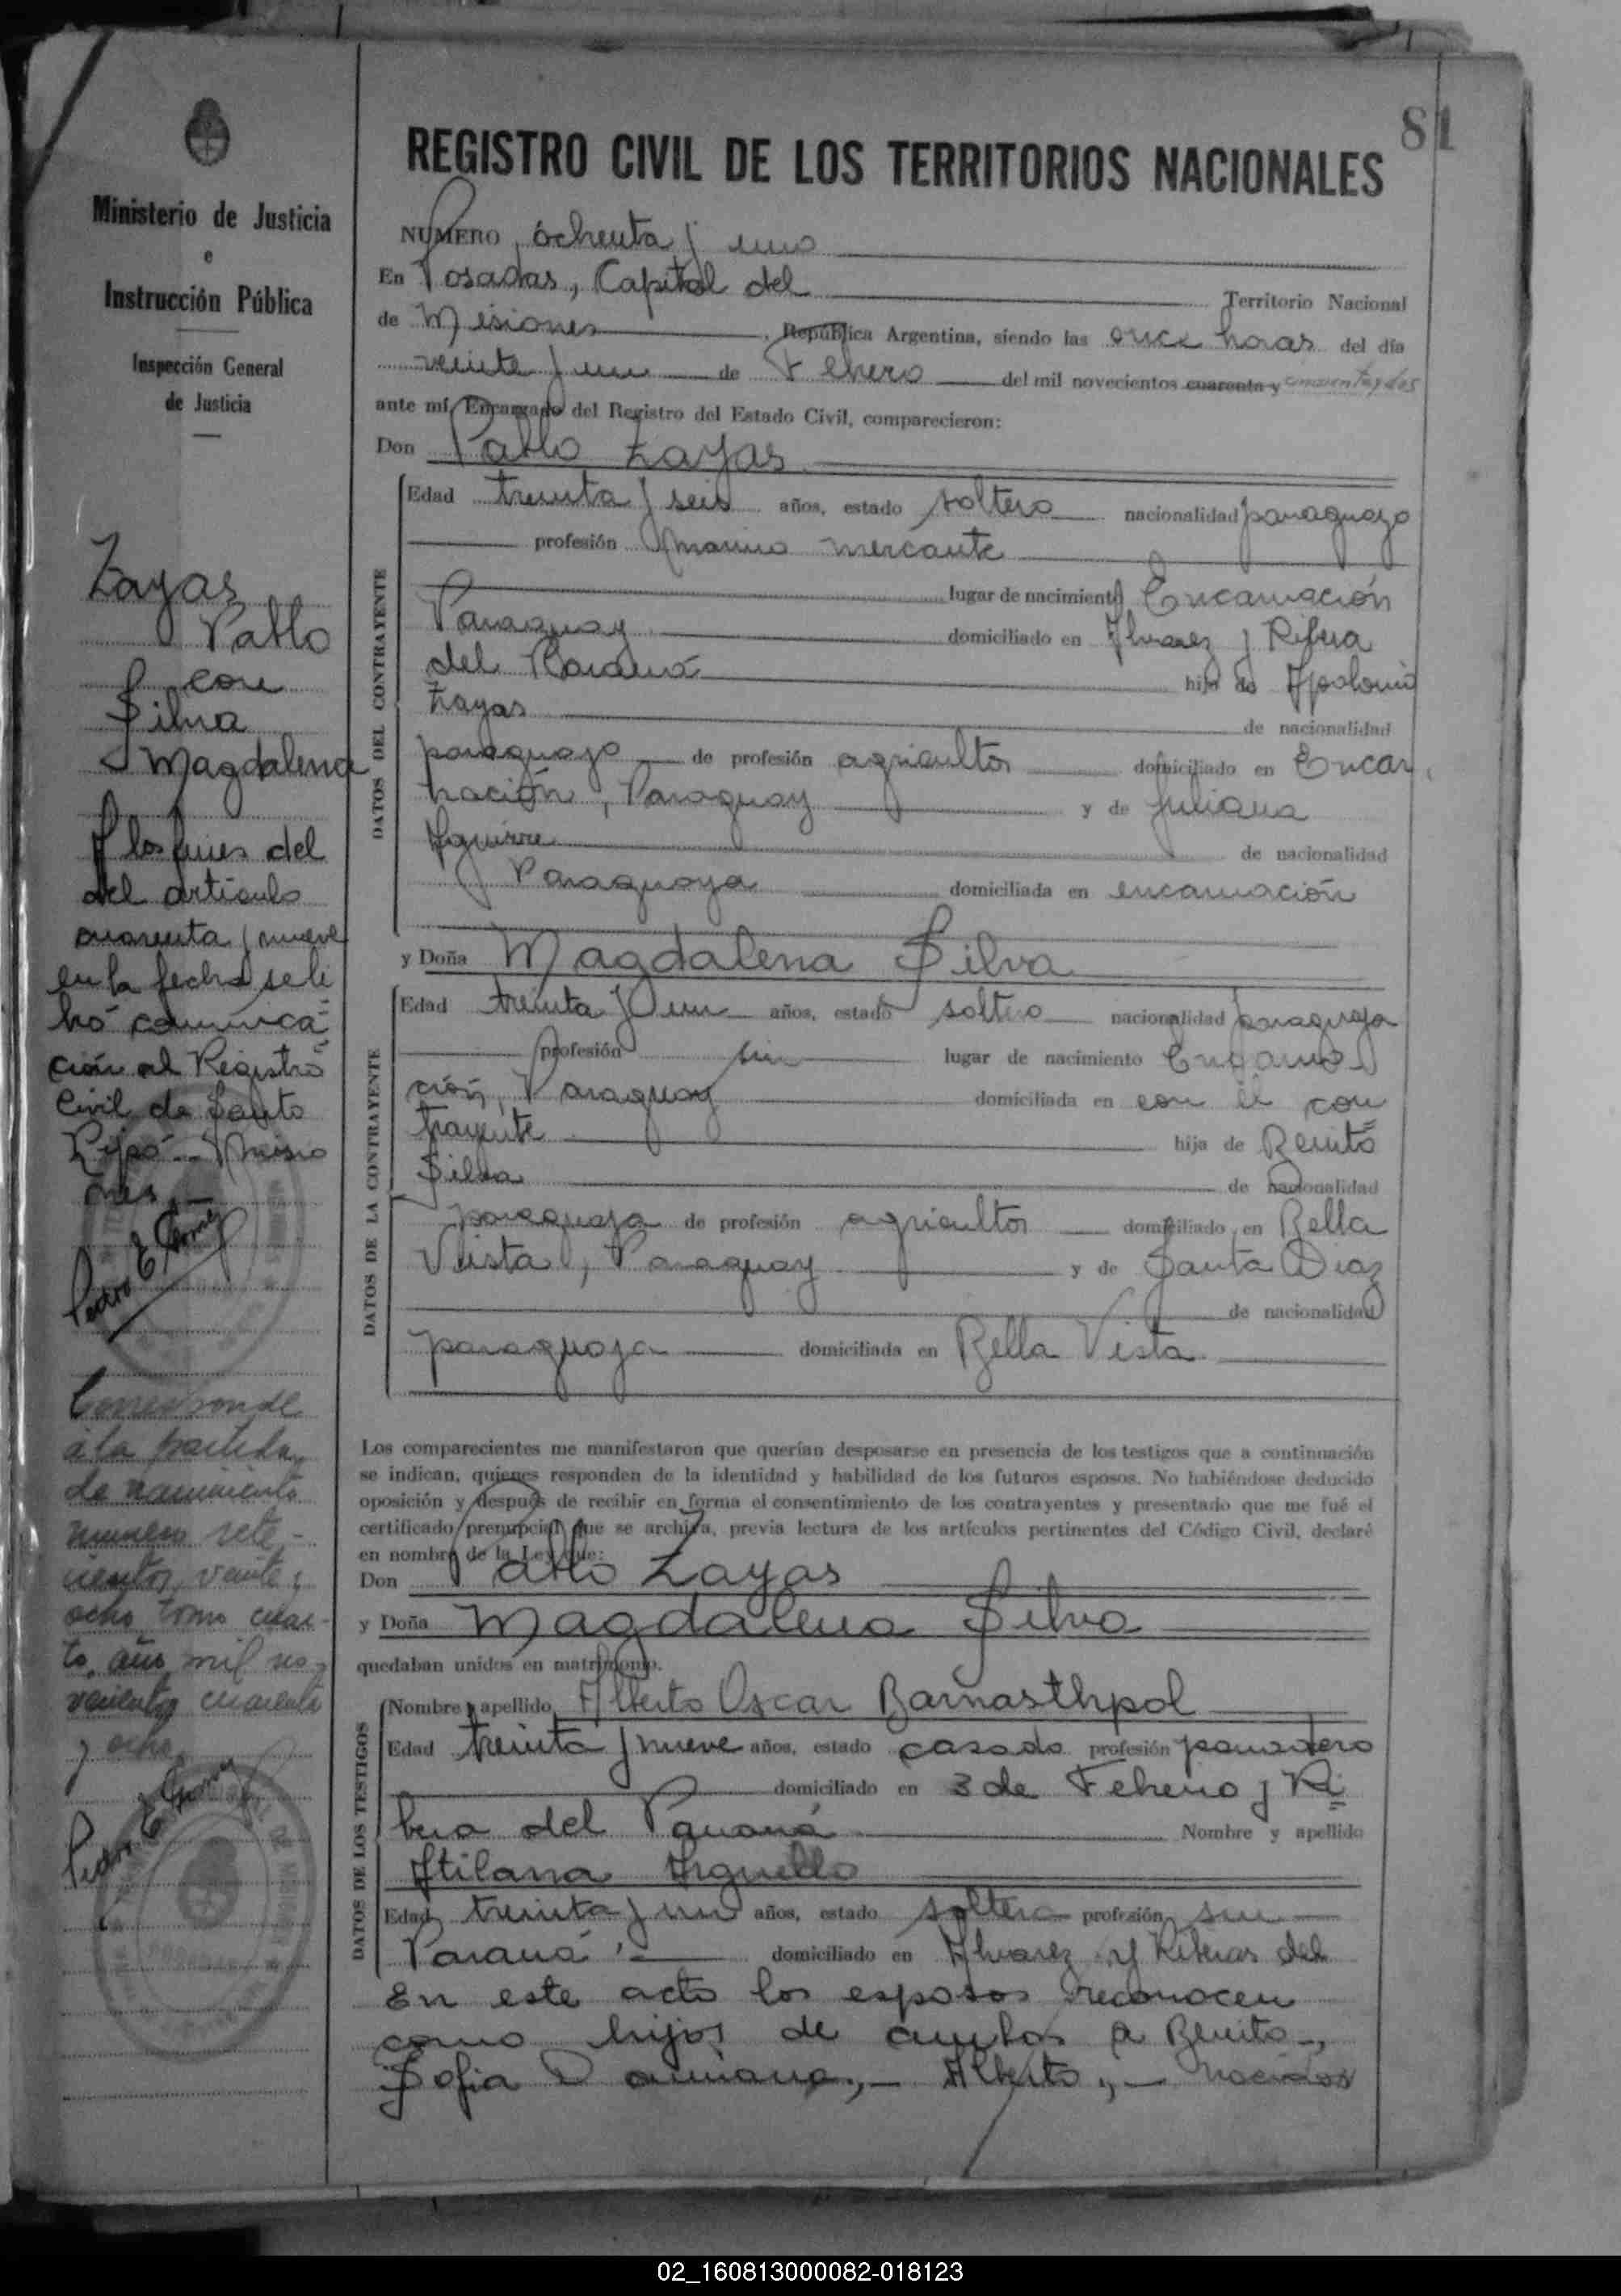 81
Ministerio de Justicia
e
Instrucción Pública
Inspección General
de Justicia
Zayas
Pablo
con
Silva
Magdalena
A los fines del
del artículo
cuarenta y nueve
en la fecha se li
bró comunica-
ción al Registro
Civil de Santo
Pipó - Misio
nes.—
Pedro E. Gomez
Corresponde
a la partida
de nacimiento
numero sete-
cientos veinte y
ocho tomo cuar-
to, año mil no-
vecientos cuarenta
y ocho
Pedro E. Gomez
REGISTRO CIVIL DE LOS TERRITORIOS NACIONALES
NUMERO ochenta y uno
En Posadas, Capital del Territorio Nacional
de Misiones, República Argentina, siendo las once horas del día
veinte y un de Febrero del mil novecientos cuarenta y cincuenta y dos
ante mí, Encargado del Registro del Estado Civil, comparecieron:
Don Pablo Zayas
DATOS DEL CONTRAYENTE
Edad treinta y seis años, estado soltero nacionalidad paraguayo
profesión marino mercante
lugar de nacimiento Encarnación
Paraguay domiciliado en Alvarez y Ribera
del Paraná hijo de Apolonio
Zayas de nacionalidad
paraguayo de profesión agricultor domiciliado en Encar
nación, Paraguay y de Juliana
Aguirre de nacionalidad
Paraguaya domiciliada en encarnación
y Doña Magdalena Silva
DATOS DE LA CONTRAYENTE
Edad treinta y un años, estado soltero nacionalidad paraguaya
profesión sin lugar de nacimiento Encarna
ción, Paraguay domiciliada en con el con
trayente hija de Benito
Silva de nacionalidad
paraguaya de profesión agricultor domiciliado en Bella
Vista, Paraguay y de Santa Diaz
de nacionalidad
paraguaya domiciliada en Bella Vista
Los comparecientes me manifestaron que querían desposarse en presencia de los testigos que a continuación
se indican, quienes responden de la identidad y habilidad de los futuros esposos. No habiéndose deducido
oposición y después de recibir en forma el consentimiento de los contrayentes y presentado que me fué el
certificado prenupcial que se archiva, previa lectura de los artículos pertinentes del Código Civil, declaré
en nombre de la Ley que:
Don Pablo Zayas
y Doña Magdalena Silva
quedaban unidos en matrimonio.
DATOS DE LOS TESTIGOS
Nombre y apellido Alberto Oscar Barnasthpol
Edad treinta y nueve años, estado casado profesión panadero
domiciliado en 3 de Febrero y Ri
bera del Paraná Nombre y apellido
Atilana Arguello
Edad treinta y un años, estado soltera profesión sin
Paraná.— domiciliado en Alvarez y Riberas del
En este acto los esposos reconocen
como hijos de ambos a Benito.,
Sofia Damiana,— Alberto,— nacidos
02_160813000082-018123